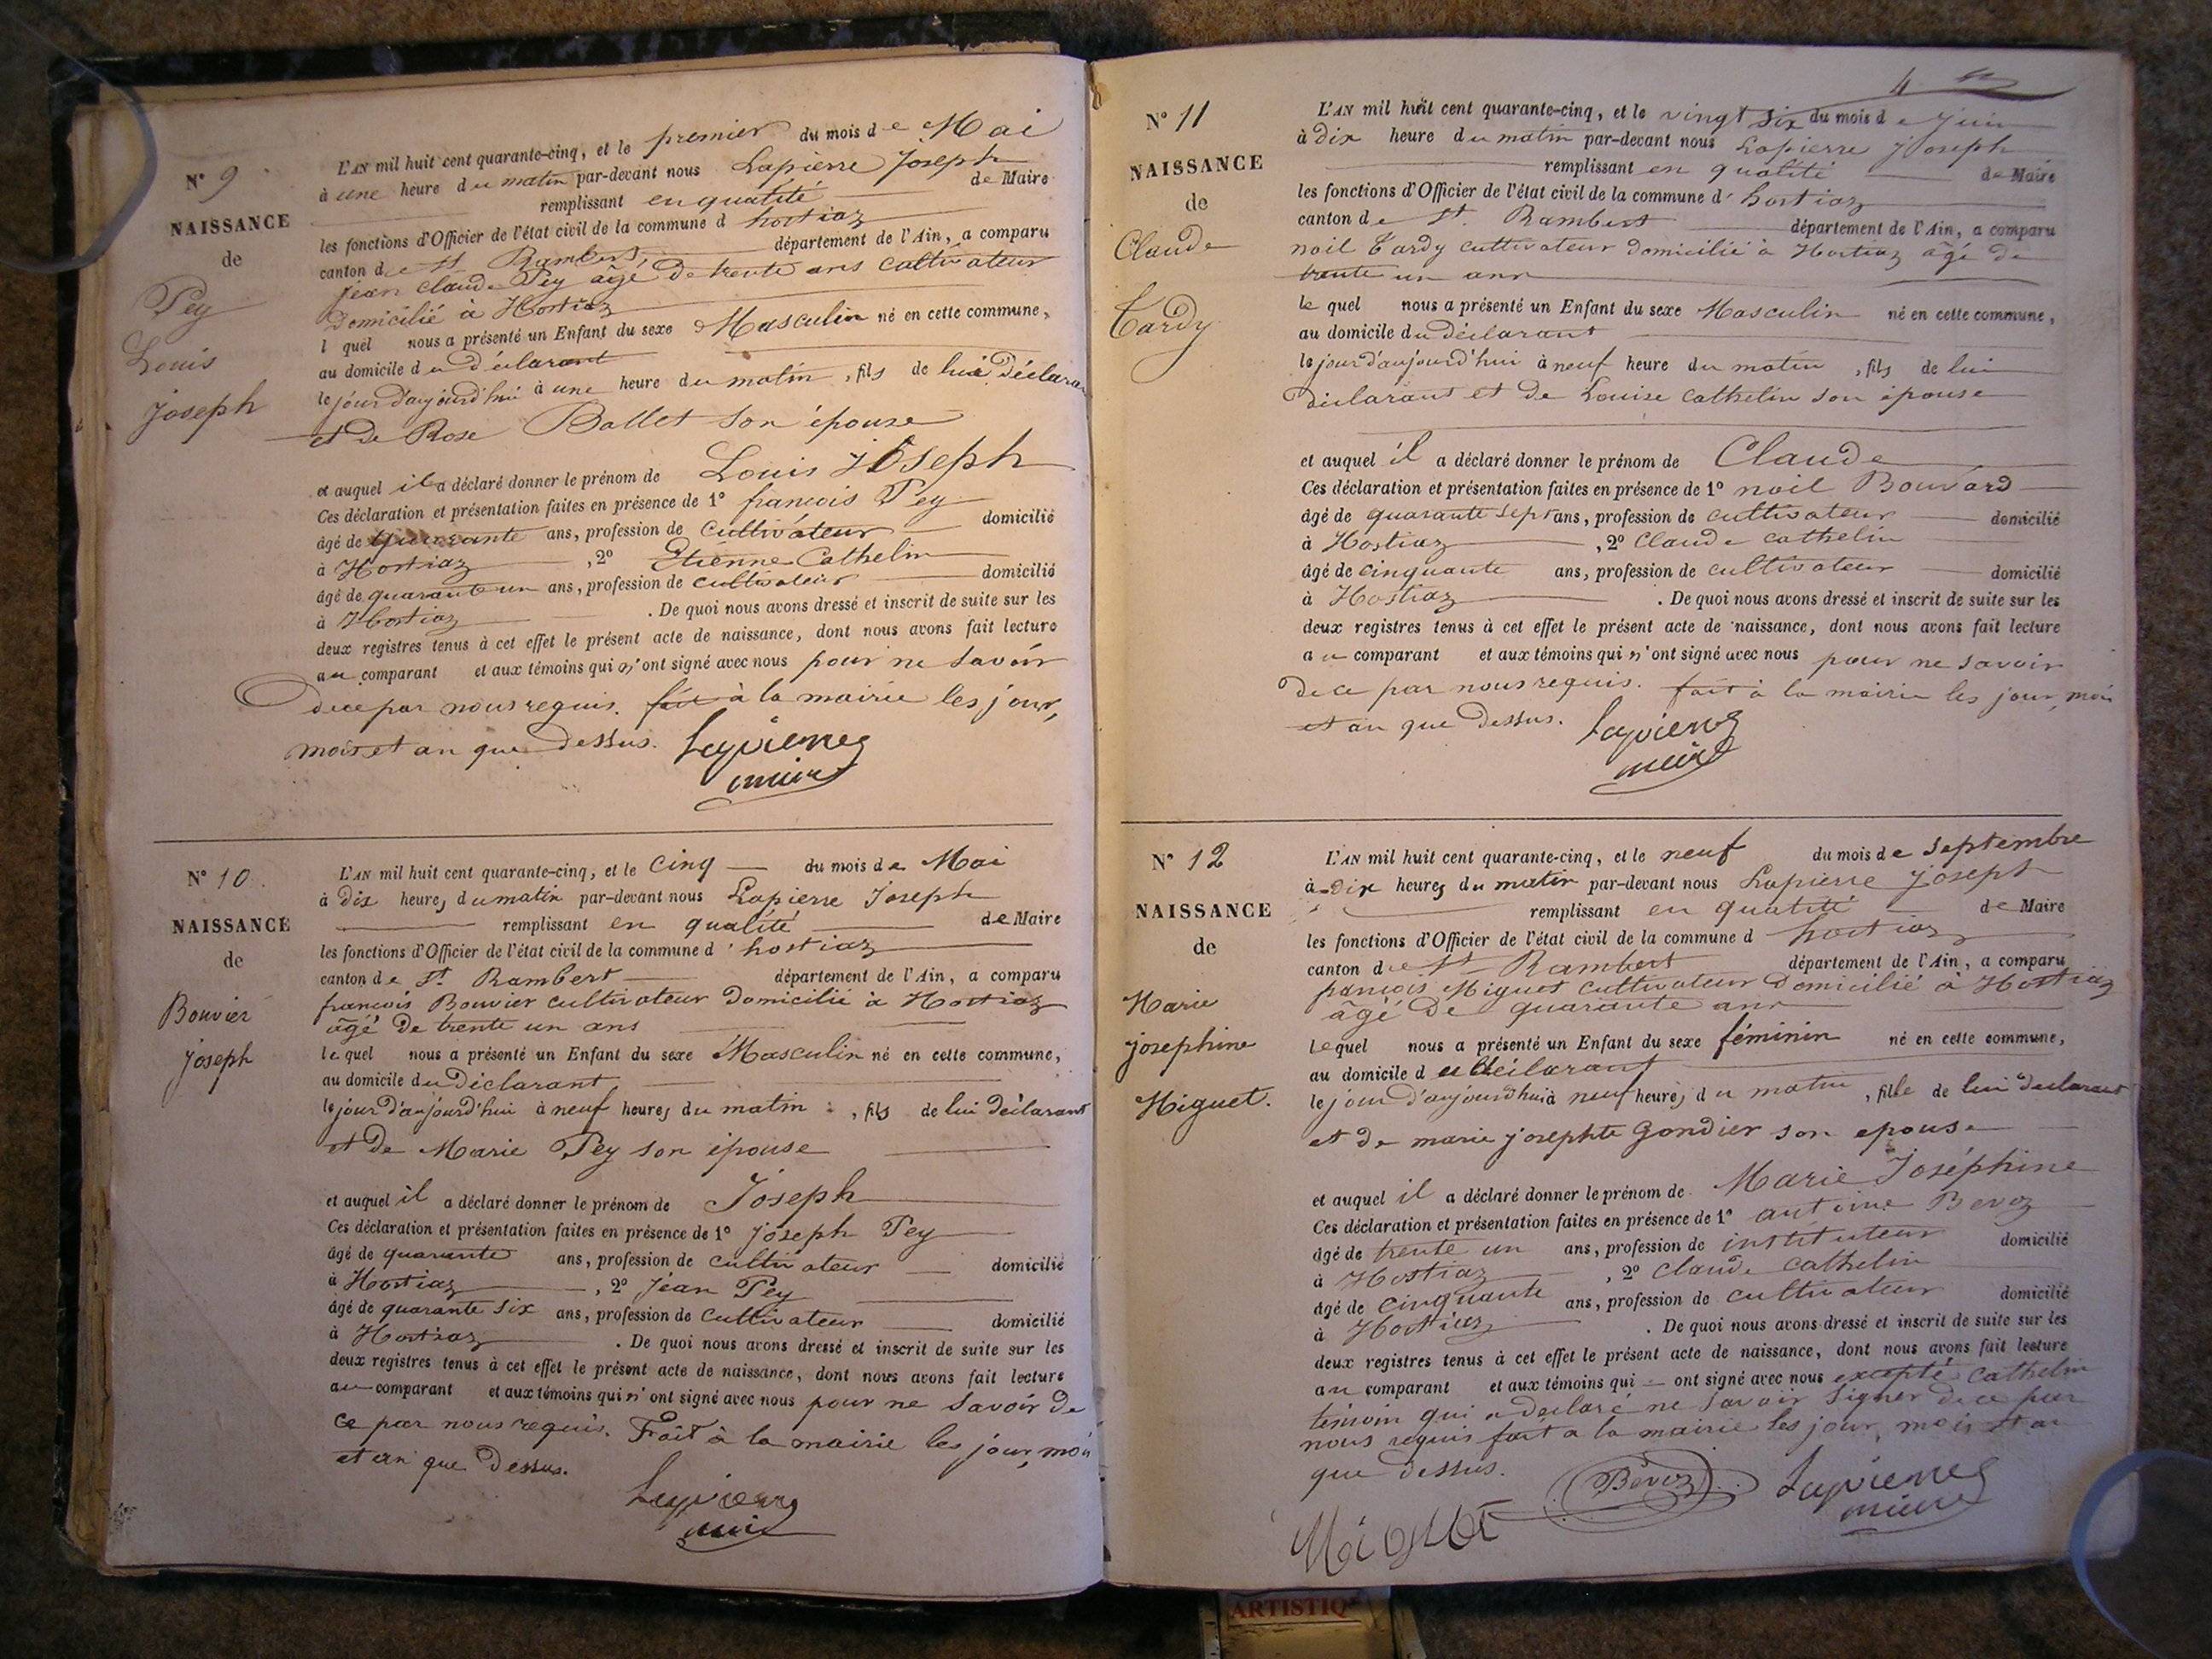 N° 9
NAISSANCE
de
Pey
Louis
Joseph
L'AN mil huit cent quarante-cinq, et le premier du mois de Mai
à une heure du matin par-devant nous Lapierre Joseph
remplissant en qualité de Maire
les fonctions d'Officier de l'état civil de la commune d'hostiaz
canton de St. Rambert, département de l'Ain, a comparu
jean Claude Pey âgé de trente ans cultivateur
domicilié à Hostiaz
l quel nous a présenté un Enfant du sexe Masculin né en cette commune,
au domicile du déclarant
le jour d'aujourd'hui à une heure du matin, fils de lui Déclarant
et de Rose Ballet son épouse
et auquel il a déclaré donner le prénom de Louis Joseph
Ces déclaration et présentation faites en présence de 1° francois Pey
âgé de quarante ans, profession de cultivateur domicilié
à Hostiaz, 2° Etienne Cathelin
âgé de quarante un ans, profession de cultivateur domicilié
à Hostiaz. De quoi nous avons dressé et inscrit de suite sur les
deux registres tenus à cet effet le présent acte de naissance, dont nous avons fait lecture
au comparant et aux témoins qui n'ont signé avec nous pour ne savoir
de ce par nous requis. fait à la mairie les jour,
mois et an que dessus. Lapierre
maire
N° 10.
NAISSANCE
de
Bouvier
joseph
L'AN mil huit cent quarante-cinq, et le cinq du mois de Mai
à dix heures du matin par-devant nous Lapierre Joseph
remplissant en qualité de Maire
les fonctions d'Officier de l'état civil de la commune d'hostiaz
canton de St. Rambert département de l'Ain, a comparu
francois Bouvier cultivateur domicilié à Hostiaz
âgé de trente un ans
le quel nous a présenté un Enfant du sexe Masculin né en cette commune,
au domicile du Déclarant,
le jour d'aujourd'hui à neuf heures du matin, fils de lui déclarant
et de Marie Pey son épouse
et auquel il a déclaré donner le prénom de Joseph
Ces déclaration et présentation faites en présence de 1° joseph Pey
âgé de quarante ans, profession de cultivateur domicilié
à Hostiaz, 2° Jean Pey
âgé de quarante six ans, profession de cultivateur domicilié
à Hostiaz. De quoi nous avons dressé et inscrit de suite sur les
deux registres tenus à cet effet le présent acte de naissance, dont nous avons fait lecture
au comparant et aux témoins qui n'ont signé avec nous pour ne savoir de
ce par nous requis. Fait à la mairie les jour, mois
et an que dessus.
Lapierre
maire
4
N° 11
NAISSANCE
de
Claude
Tardy
L'AN mil huit cent quarante-cinq, et le vingt six du mois de juin
à dix heure du matin par-devant nous Lapierre Joseph
remplissant en qualité de Maire
les fonctions d'Officier de l'état civil de la commune d'hostiaz
canton de St. Rambert département de l'Ain, a comparu
noil Tardy cultivateur domicilié à Hostiaz âgé de
trente un ans
le quel nous a présenté un Enfant du sexe Masculin né en cette commune,
au domicile du déclarant
le jour d'aujourd'hui à neuf heure du matin, fils de lui
déclarant et de Louise cathelin son épouse
et auquel il a déclaré donner le prénom de Claude
Ces déclaration et présentation faites en présence de 1° noil Bouvard
âgé de quarante sept ans, profession de cultivateur domicilié
à Hostiaz, 2° Claude cathelin
âgé de cinquante ans, profession de cultivateur domicilié
à Hostiaz. De quoi nous avons dressé et inscrit de suite sur les
deux registres tenus à cet effet le présent acte de naissance, dont nous avons fait lecture
au comparant et aux témoins qui n'ont signé avec nous pour ne savoir
de ce par nous requis. fait à la mairie les jour, mois
et an que dessus. Lapierre
maire
N° 12
NAISSANCE
de
Marie
josephine
Miguet.
L'AN mil huit cent quarante-cinq, et le neuf du mois de septembre
à dix heures du matin par-devant nous Lapierre joseph
remplissant en qualité de Maire
les fonctions d'Officier de l'état civil de la commune d hostiaz
canton de St Rambert département de l'Ain, a comparu
françois Miguet cultivateur domicilié à Hostiaz
âgé de quarante ans
Lequel nous a présenté un Enfant du sexe féminin né en cette commune,
au domicile du déclarant
le jour d'aujourd'hui à neuf heures du matin, fille de lui declarant
et de marie josephte gondier son epouse
et auquel il a déclaré donner le prénom de Marie Joséphine
Ces déclaration et présentation faites en présence de 1° antoine Bevoz
âgé de trente un ans, profession de instituteur domicilié
à Hostiaz, 2° Claude cathelin
âgé de cinquante ans, profession de cultivateur domicilié
à Hostiaz. De quoi nous avons dressé et inscrit de suite sur les
deux registres tenus à cet effet le présent acte de naissance, dont nous avons fait lecture
au comparant et aux témoins qui ont signé avec nous excepté cathelin
témoin qui a declaré ne savoir signer de ce par
nous requis fait a la mairie les jour, mois et an
que dessus. Bévoz Lapierre
maire
Miguet
ARTISTIQ